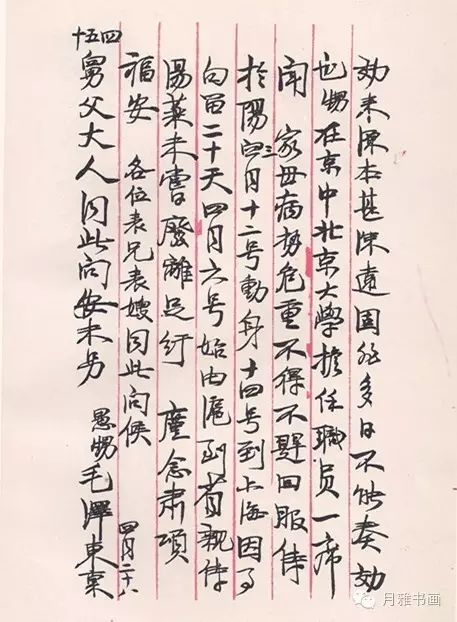 効来源本甚深遠固非多日不能奏効
也甥在京中北京大學擔任職员一席
闻 家母病势危重不得不趕回服侍
於陽三月十二號動身十四号到上海因事
勾留二十天四月六号始由滬到省親侍
湯藥未嘗廢離足紓 廑念肅頌
福安 各位表兄表嫂同此问候
四五十舅父大人同此问安未另
愚甥毛澤東稟
四月二十八
月雅书画